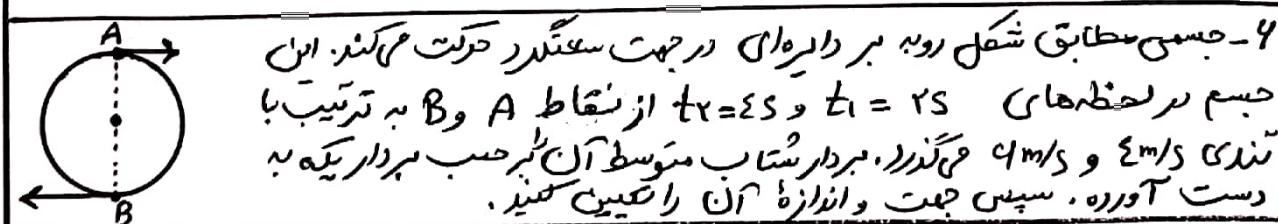 A
B
۶- جسمی مطابق شکل روبه بر دایره‌ای در جهت ساعتگرد حرکت می‌کند. این
جسم در لحظه‌های t₁ = ۲s و t₂=٤s از نقاط A و B به ترتیب با
تندی ٤m/s و ۶m/s می‌گذرد. بردار شتاب متوسط آن را برحسب بردار یکه به
دست آورده، سپس جهت و اندازهٔ آن را تعیین کنید.